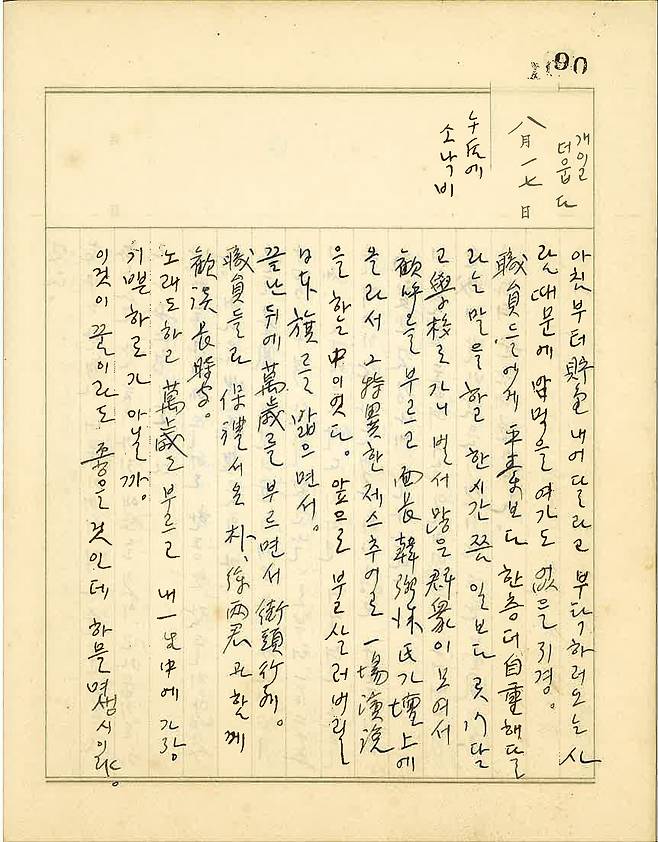 90
개이고
더웁다
八月一七日
午后에
소낙비
아침부터 貯金 내어달라고 부탁하러 오는 사
람 때문에 밥 먹을 여가도 없을 지경。
職員들에게 平素보다 한층 더 自重해달
라는 말을 하고 한시간쯤 일보다 곳 
고 學校로 가니 벌서 많은 群衆이 모여서
歡呼를 부르고 面長 韓弼洙氏가 壇上에
올라서 그 特異한 제스추어로 一場演說
을 하는 中이였다。앞으로 불 살러버릴
日本旗를 밟으면서。
끝난 뒤에 萬歲를 부르면서 街頭行進。
職員들과 保禮서 온 朴、徐 両君과 함께
歡談長時間。
노래도 하고 萬歲도 부르고 내 一生中에 가장
기쁠 하로가 아닐까。
이것이 꿀이라도 좋을 것인데 하물며 생시이랴。